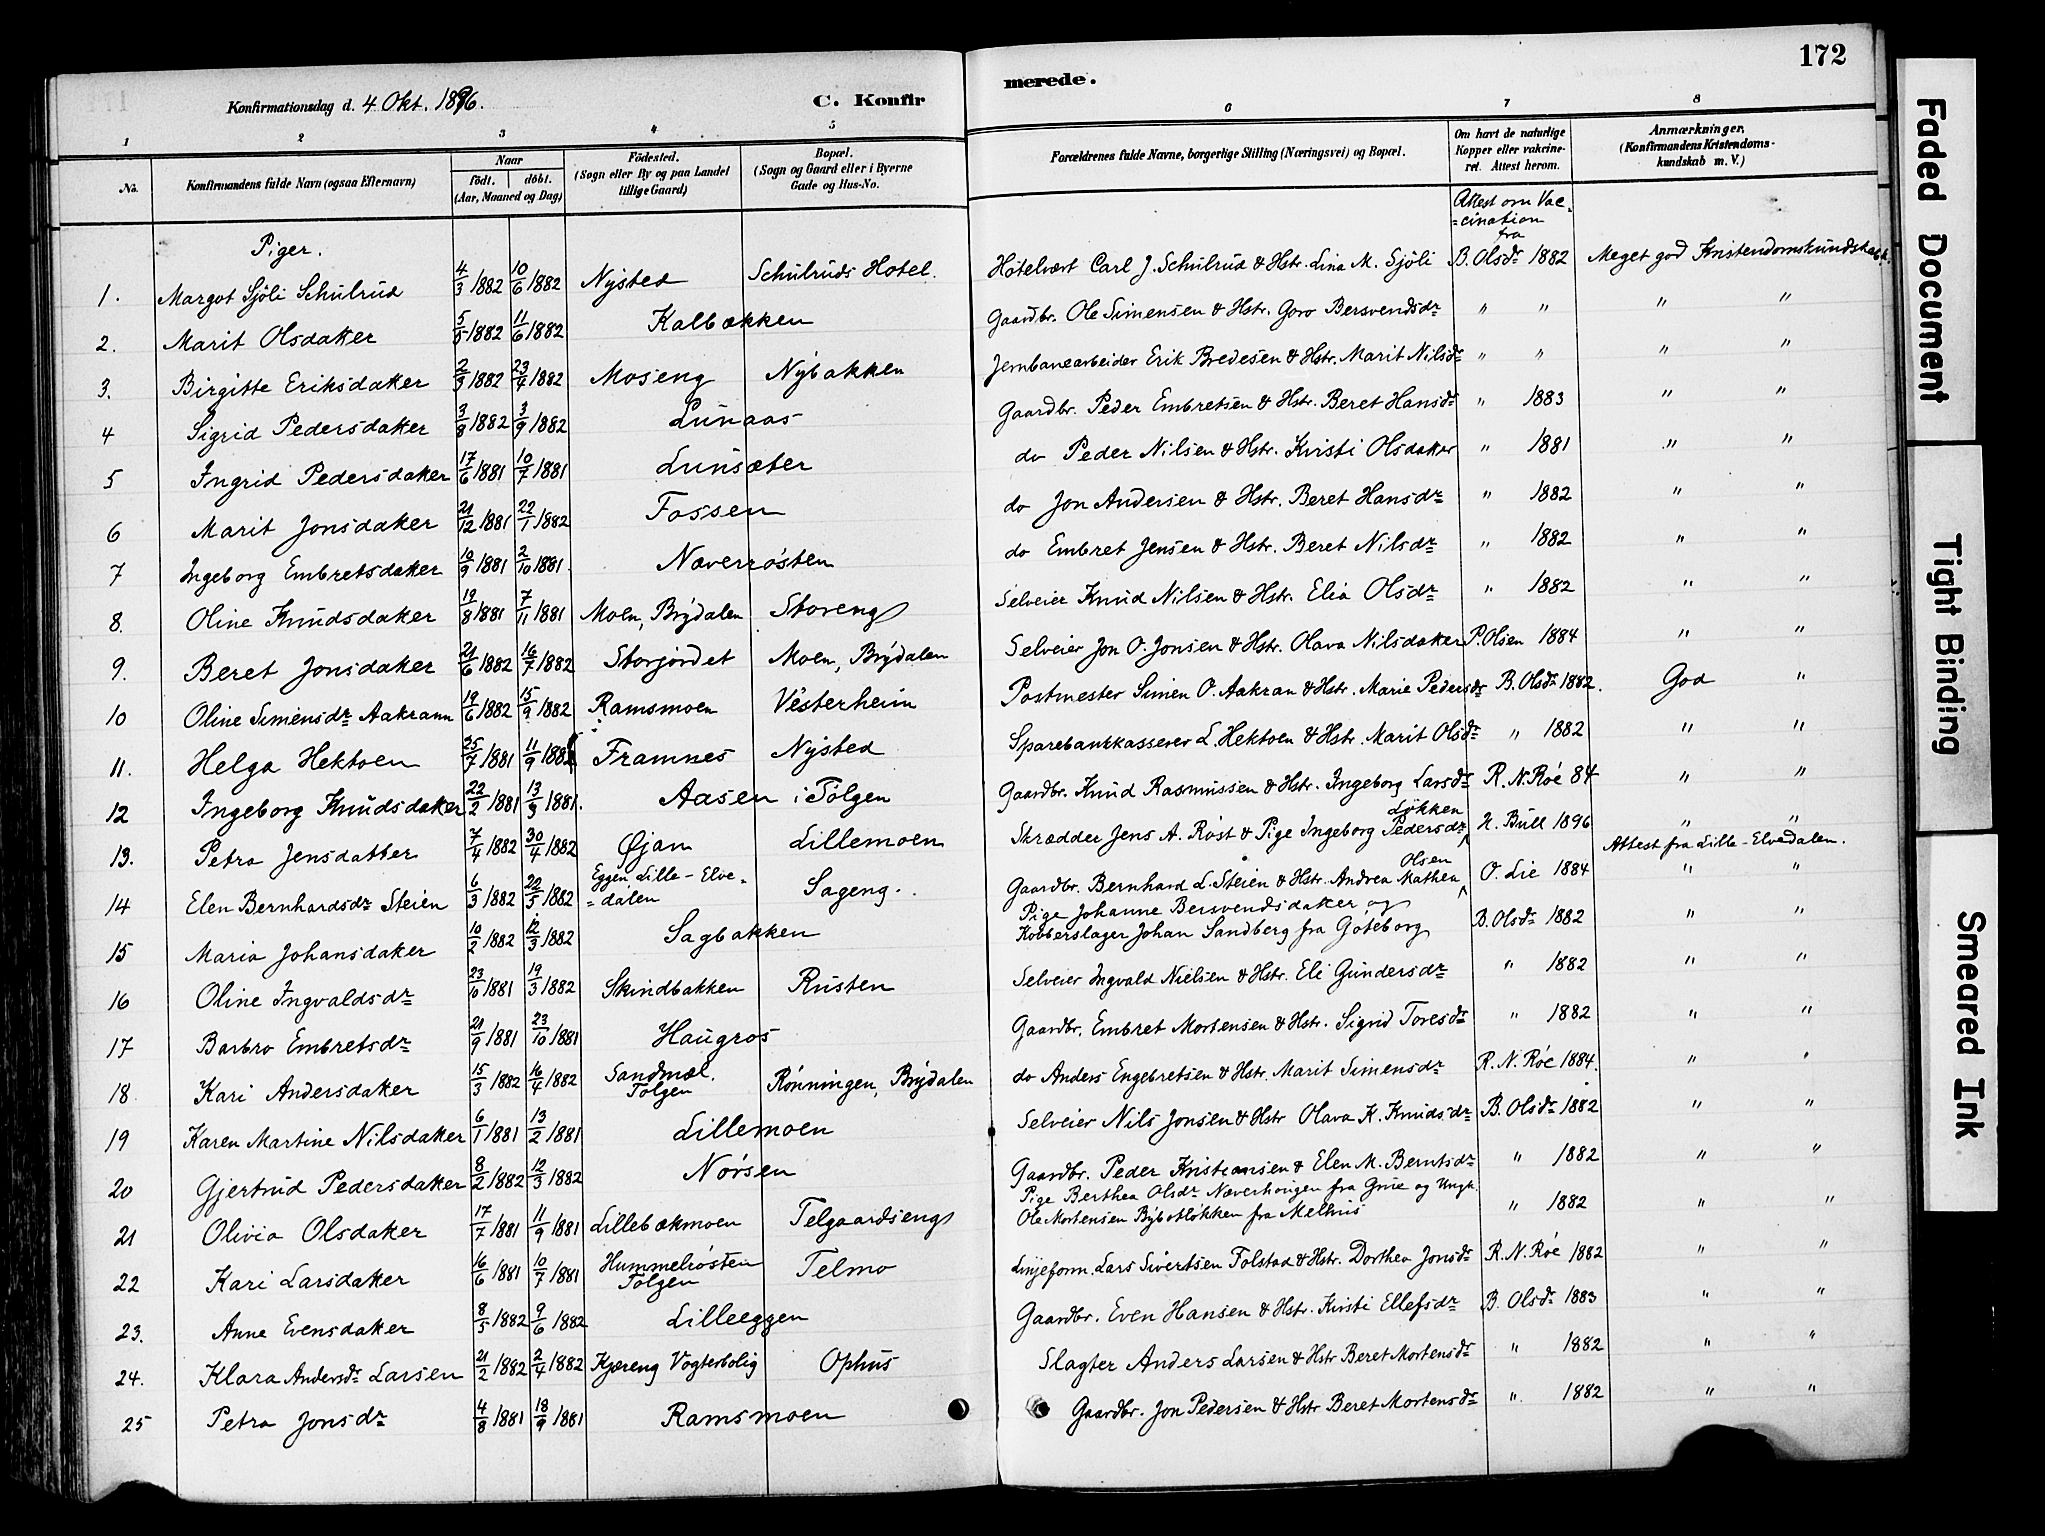 172
Konfirmationsdag d. 4. Okt. 1896. C. Konfir merede.
1 2 3 4 5 6 7 8
No. Konfirmandens fulde Navn (ogsaa Efternavn) Naar födt. döbt. (Aar, Maaned og Dag) Födested. (Sogn eller By og paa Landet tillige Gaard) Bopæl. (Sogn og Gaard eller i Byerne Gade og Hus-No. Forældrenes fulde Navne, borgerlige Stilling (Næringsvei) og Bopæl. Om havt de naturlige Kopper eller vakcineret. Attest herom. Anmærkninger. (Konfirmandens Kristendomskundskab m. V.)
Attest om Vac=
=cination
fra
Piger.
1. Margot Sjöli Schulrud 4/3 1882 10/6 1882 Nysted Schulruds Hotel. Hotelvært Carl J. Schulrud & Hstr. Lina M. Sjöli B. Olsdr 1882 Meget god Kristendomskundskab.
2. Marit Olsdatter 5/5 1882 11/6 1882 Kalbækken Gaardbr. Ole Simensen & Hstr. Goro Bersvendsdr " " " "
3. Birgitte Eriksdatter 2/3 1882 23/4 1882 Moseng Nybakken Jernbanearbeider Erik Bredesen & Hstr. Marit Nilsdr " " " "
4 Sigrid Pedersdatter 3/8 1882 3/9 1882 Lunaas Gaardbr. Peder Embretsen & Hstr. Beret Hansdr " 1883 " "
5 Ingrid Pedersdatter 17/6 1881 10/7 1881 Lunsæter do Peder Nilsen & Hstr. Kirsti Olsdatter " 1881 " "
6 Marit Jonsdatter 21/12 1881 22/1 1882 Fossen do Jon Andersen & Hstr. Beret Hansdr " 1882 " "
7 Ingeborg Embretsdatter 10/9 1881 2/10 1881. Næverrösten do Embret Jensen & Hstr. Beret Nilsdr " 1882 " "
8. Oline Knudsdatter 19/8 1881 7/11 1881 Moen, Brydalen Storeng Selveier Knud Nilsen & Hstr. Elia Olsdr " 1882 " "
9. Beret Jonsdatter 21/6 1882 16/7 1882 Storjordet Moen, Brydalen Selveier Jon O. Jonsen & Hstr. Olava Nilsdatter P. Olsen 1884 " "
10 Oline Simensdr Aakrann 19/6 1882 15/9 1882 Ramsmoen Vesterheim Postmester Simen O. Aakran & Hstr. Marie Pedersdr B. Olsdr 1882. God "
11. Helga Hektoen 25/7 1881 11/9 1881 Framnes Nysted Sparebankkasserer L. Hektoen & Hstr. Marit Olsdr " 1882 " "
12 Ingeborg Knudsdatter 22/2 1881 13/3 1881. Aasen i Tolgen Gaardbr. Knud Rasmussen & Hstr. Ingeborg Larsdr R. N. Röe 84 " "
13. Petra Jensdatter 7/4 1882 30/4 1882 Øjan Lillemoen Skrædder Jens A. Röst & Pige Ingeborg Pedersdr Løkken H. Bull 1896 " "
Attest fra Lille-Elvedalen.
14 Elen Bernhardsdr Steien 6/3 1882 22/5 1882 Eggen Lille-Elve=
=dalen Sageng. Gaardbr. Bernhard L. Steien & Hstr. Andrea Mathea Olsen O. Lie 1884 " "
15 Maria Johansdatter 10/2 1882 12/3 1882 Sagbakken Pige Johanne Bersvendsdatter og
Kobberslager Johan Sandberg fra Göteborg B. Olsdr 1882 " "
16 Oline Ingvaldsdr 23/10 1881 19/3 1882 Skindbakken Rusten Selveier Ingvald Nielsen & Hstr. Eli Gundersdr " 1882 " "
17 Barbro Embretsdr 21/9 1881 23/10 1881 Haugros Gaardbr. Embret Mortensen & Hstr. Sigrid Toresdr " 1882 " "
18 Kari Andersdatter 15/3 1882 16/4 1882 Sandmæl.
Tolgen Rönningen, Brydalen do Anders Engebretsen & Hstr. Marit Simensdr R. N. Röe 1884. " "
19 Karen Martine Nilsdatter 6/1 1881 13/2 1881 Lillemoen Selveier Nils Jonsen & Hstr Olava K. Knudsdr B. Olsdr 1882 " "
20 Gjertrud Pedersdatter 8/2 1882 12/3 1882 Nörsen Gaardbr. Peder Kristiansen & Elen M. Berntsdr " 1882 " "
21 Olivia Olsdatter 17/7 1881 11/9 1881 Lillebækmoen Telgaardseng Pige Berthea Olsdr Næverhougen fra Grue og Ungk.
Ole Mortensen fra Melhus " 1882 " "
22 Kari Larsdatter 16/6 1881 10/7 1881 Hummelrösten
Tolgen Telmo Linjeform. Lars Sivertsen Folstad & Hstr. Dorthea Jonsdr R. N. Röe 1882 " "
23. Anne Evensdatter 8/5 1882 9/6 1882 Lilleeggen Gaardbr. Even Hansen & Hstr. Kirsti Ellefsdr B. Olsdr 1883 " "
24. Klara Andersdr Larsen 21/2 1882 2/4 1882 Kjæreng Vogterbolig Ophus Slagter Anders Larsen & Hstr Beret Mortensdr " 1882 " "
25 Petra Jonsdr 4/8 1881 18/9 1881 Ramsmoen Gaardbr. Jon Pedersen & Hstr Beret Mortensdr " 1882 " "
Faded Document
Tight Binding
Smeared Ink